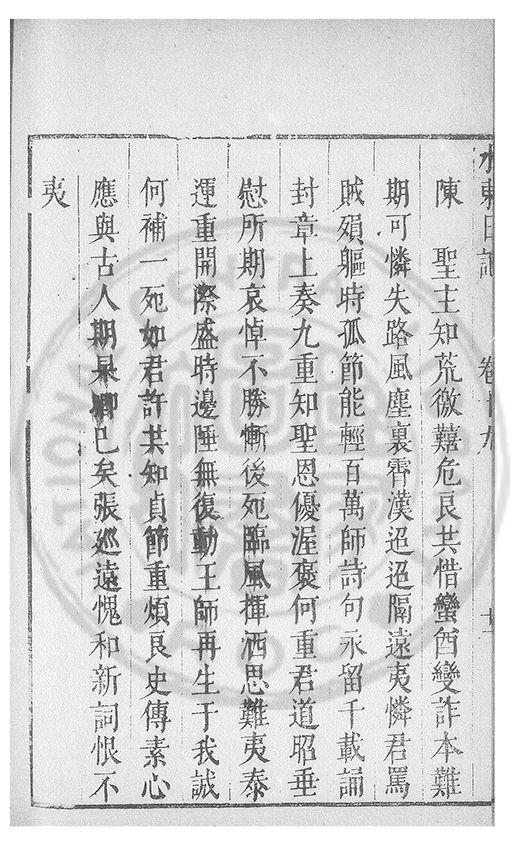 水東日記 卷十九
陳　聖主知荒徼囏危良共惜蠻酋變詐本難
期可憐失路風塵裏霄漢迢迢隔遠夷憐君罵
賊殞軀時孤節能輕百萬師詩句永留千載誦
封章上奏九重知聖恩優渥褒何重君道昭垂
慰所期哀悼不勝慚後死臨風揮洒思難夷泰
運重開際盛時邊陲無復動王師再生于我誠
何補一死如君許共知貞節重煩良史傳素心
應與古人期杲卿已矣張巡遠愧和新詞恨不
夷